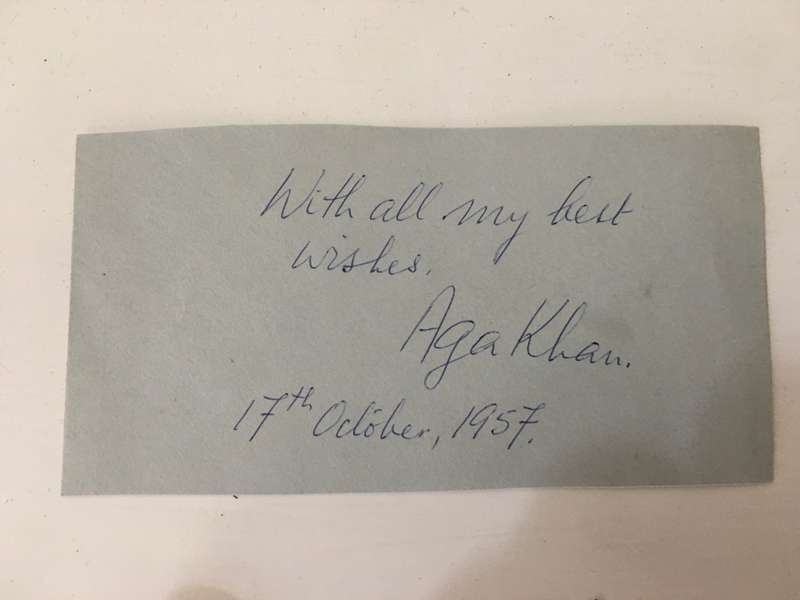 With all my best
wishes.
Aga Khan.
17th October, 1957.